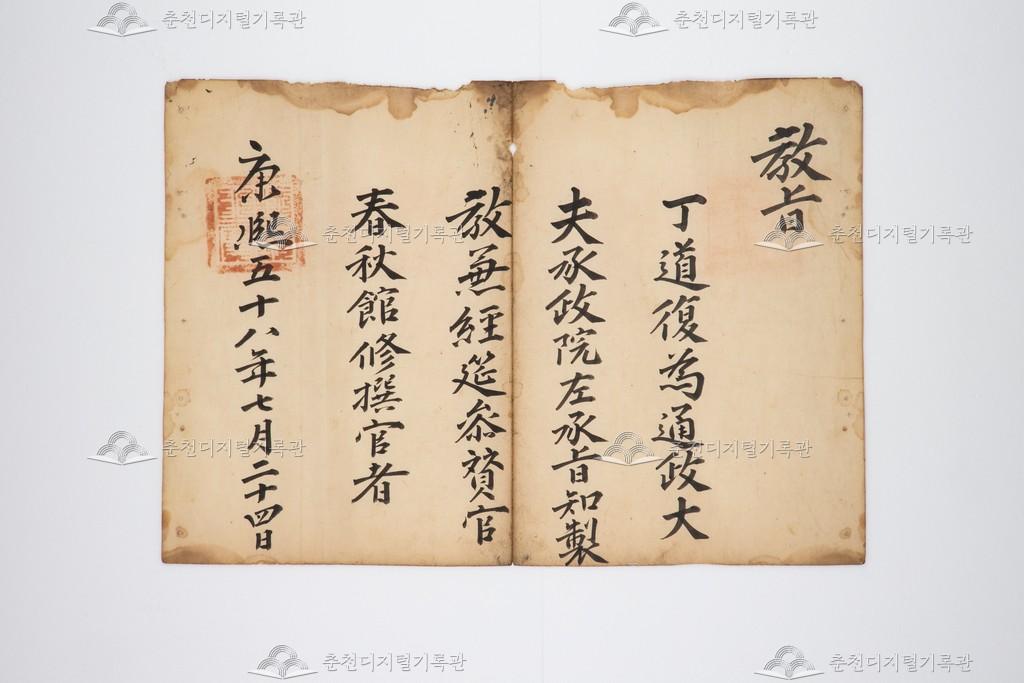 敎旨
丁道復為通政大
夫承政院左承旨知製
敎蕪經筵叅賛官
春秋館修撰官者
康熙五十八年七月二十四日
춘천디지털기록관
춘천디지털기록관
춘천디지털기록관
춘천디지털기록관
춘천디지털기록관
춘천디지털기록관
춘천디지털기록관
춘천디지털기록관